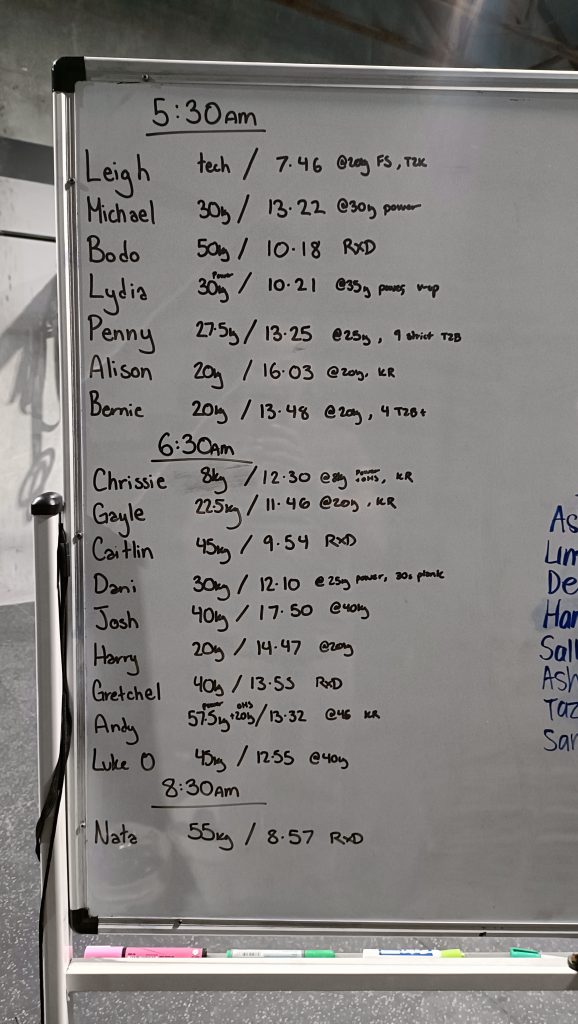 5:30AM
Leigh tech / 7.46 @20kg FS, T2K
Michael 30kg / 13.22 @30kg power
Bodo 50kg / 10.18 RXD
Lydia 30kg power / 10.21 @35kg power,
Penny 27.5kg / 13.25 @25kg, 9 strict T2B
Alison 20kg / 16.03 @20kg, KR
Bernie 20kg / 13.48 @20kg, 4 T2B+
6:30AM
Chrissie 8kg / 12.30 @8kg power +OHS, KR
Gayle 22.5kg / 11.46 @20kg, KR
Caitlin 45kg / 9.54 RXD
Dani 30kg / 12.10 @25kg power, 30s plank
Josh 40kg / 17.50 @40kg
Harry 20kg / 14.47 @20kg
Gretchel 40kg / 13.55 RXD
Andy 57.5kg power +20kg OHS / 13.32 @45 KR
Luke O 45kg / 12.55 @40kg
8:30AM
Nata 55kg / 8.57 RXD
As
Lim
De
Har
Sall
Ash
Taz
Sar